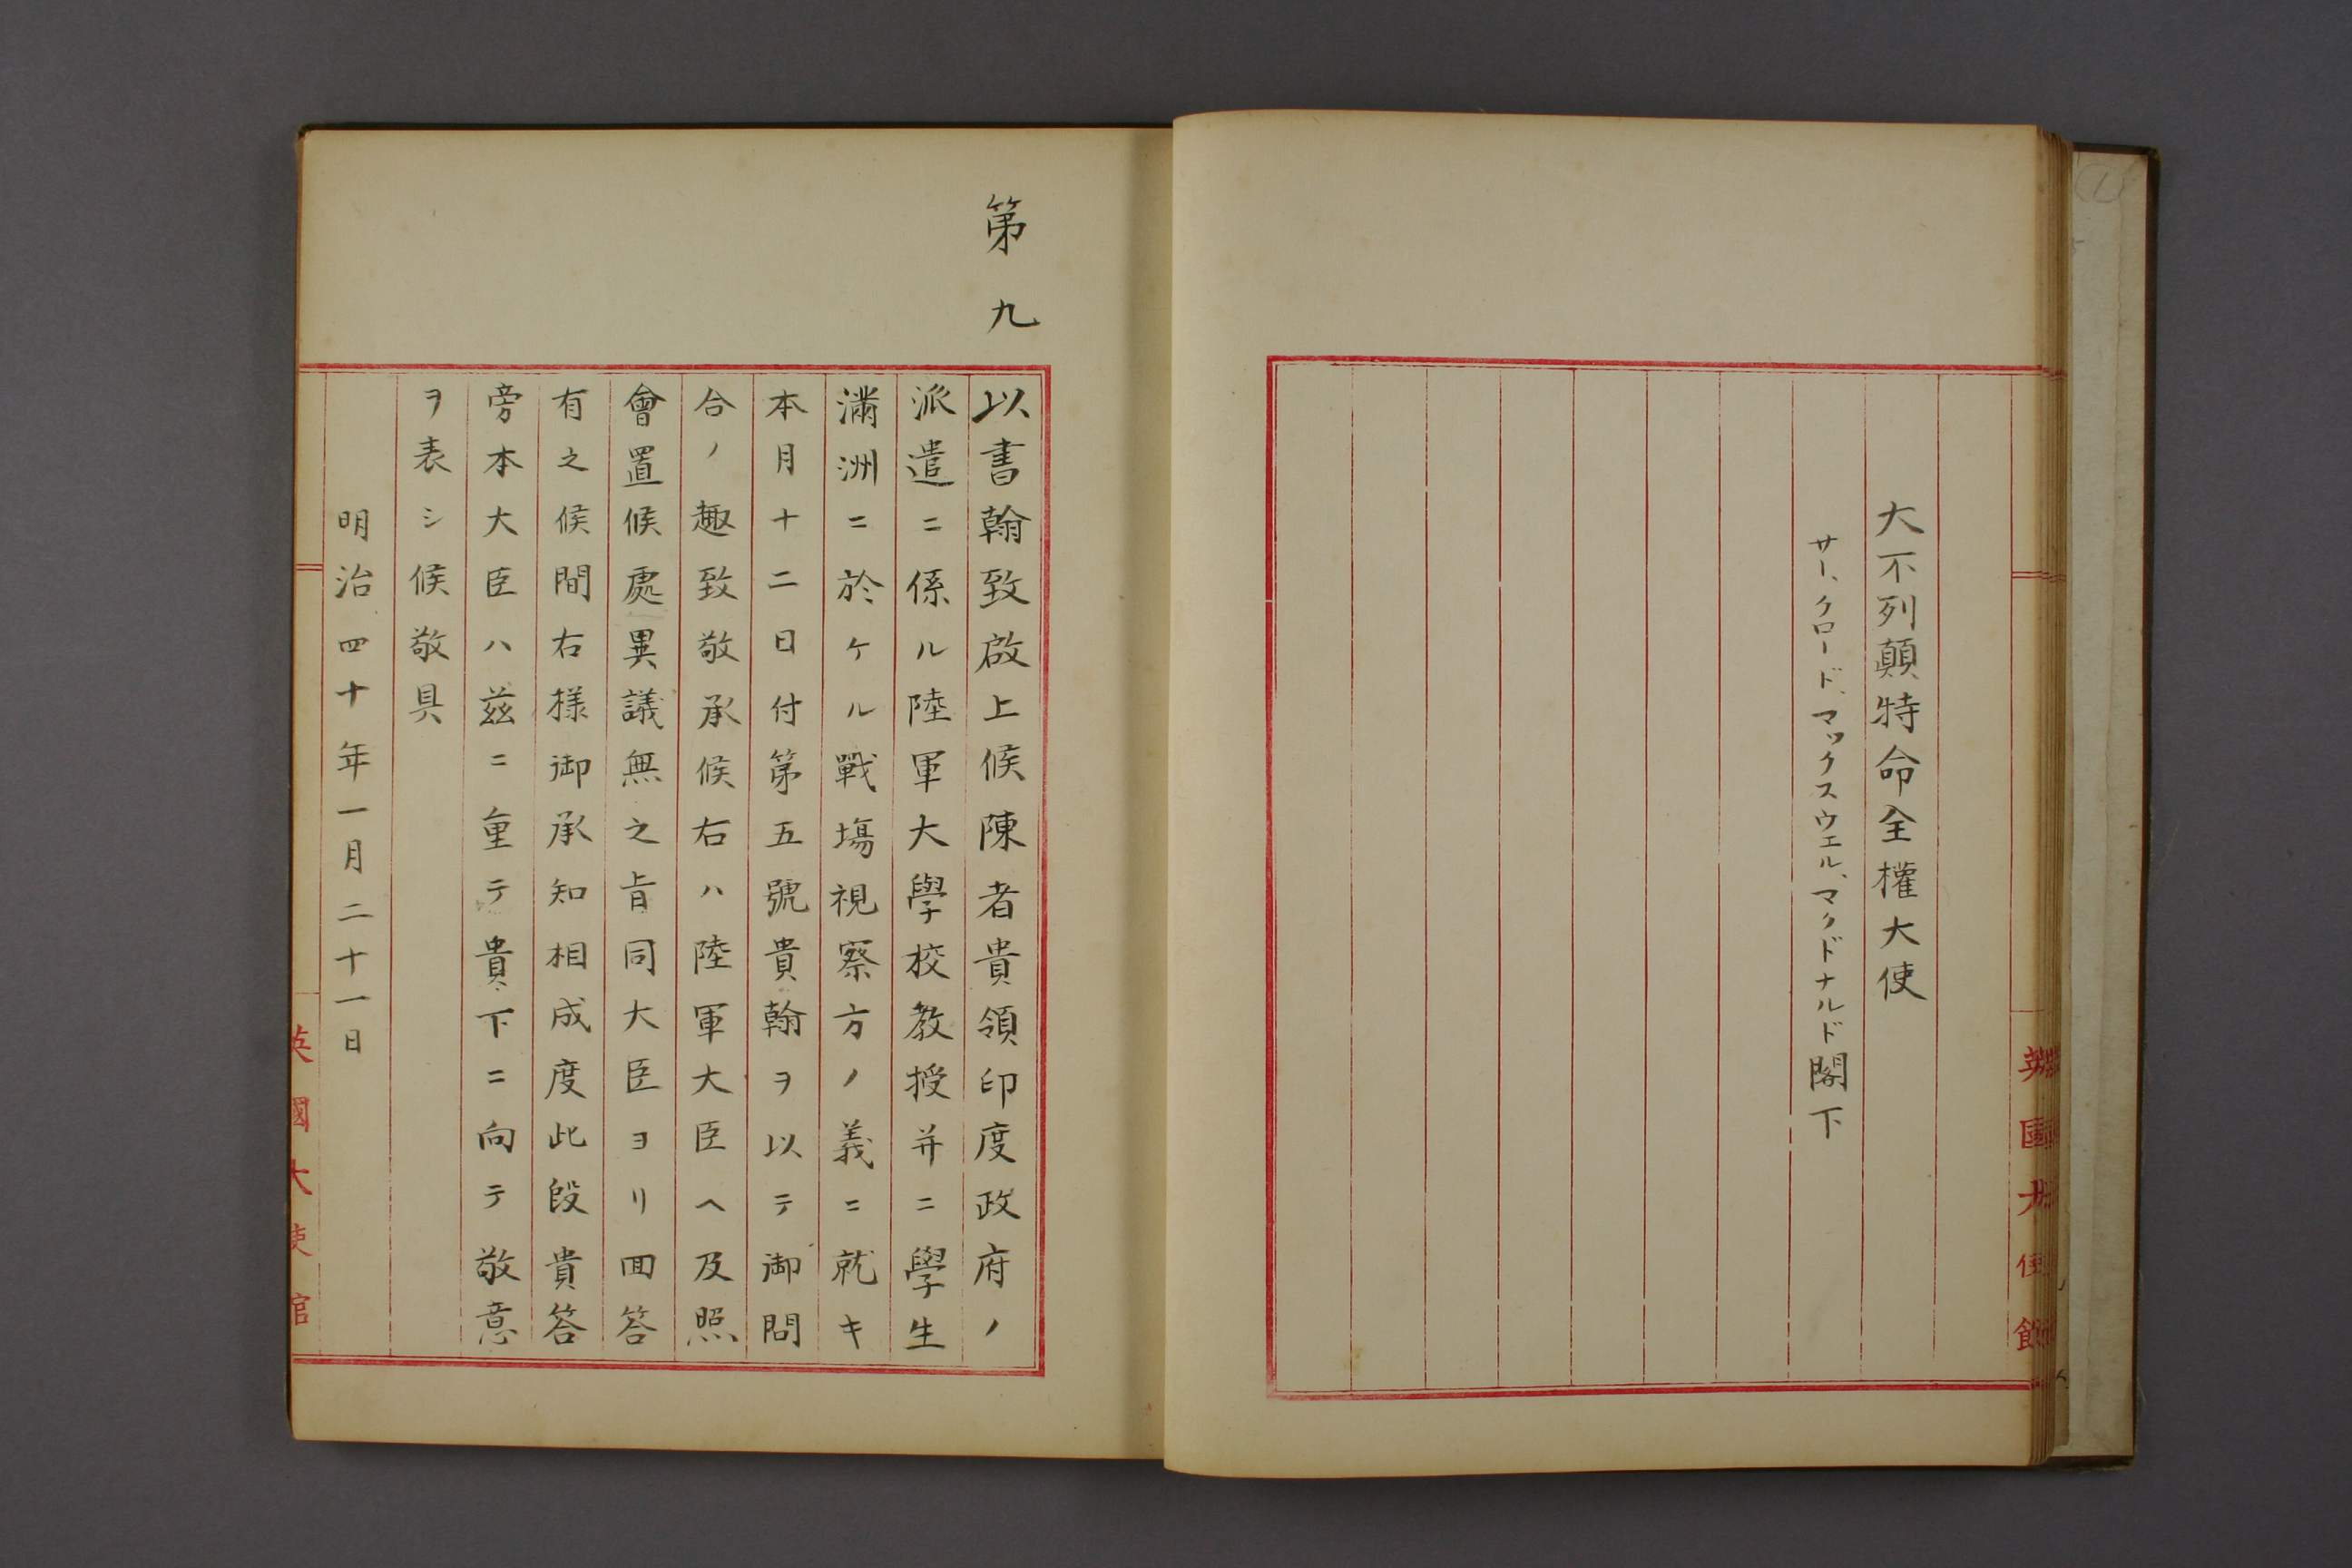 大不列顛特命全權大使
サー、クロード、マックスウェル、マクドナルド閣下
第九
以書翰致啟上候陳者貴領印度政府ノ
派遣ニ係ル陸軍大學校教授并ニ學生
滿洲ニ於ケル戰場視察方ノ義ニ就キ
本月十二日付第五號貴翰ヲ以テ御問
合ノ趣致敬承候右ハ陸軍大臣ヘ及照
會置候處異議無之旨同大臣ヨリ回答
有之候間右樣御承知相成度此段貴答
旁本大臣ハ茲ニ重テ貴下ニ向テ敬意
ヲ表シ候敬具
明治四十年一月二十一日
英國大使館